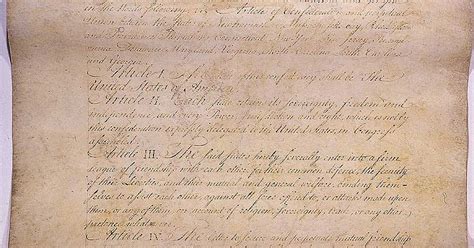 in the Words following, viz. Article of Confederation and perpetual
Union between the States of
and Providence Connecticut, New York, New Jersey, Penn
Delaware, Maryland, Virginia, North Carolina, South Carolina
and Georgia.
Article I. of this confederacy shall be The
United States of America.
Article II. Each state retains its sovereignty, freedom and
independence and every Power, Jurisdiction and right, which is not by
this confederation expressly delegated to the United States, in Congress
assembled.
Article III. The said states hereby severally enter into a firm
league of friendship with each other for their common defence, the security
of their Liberties, and their mutual and general welfare, binding them-
selves to assist each other, against all force offered to, or attacks made upon
them, or any of them, on account of religion, sovereignty, trade, or any other
pretence whatever.
Article IV. The better to secure and perpetuate mutual friendship